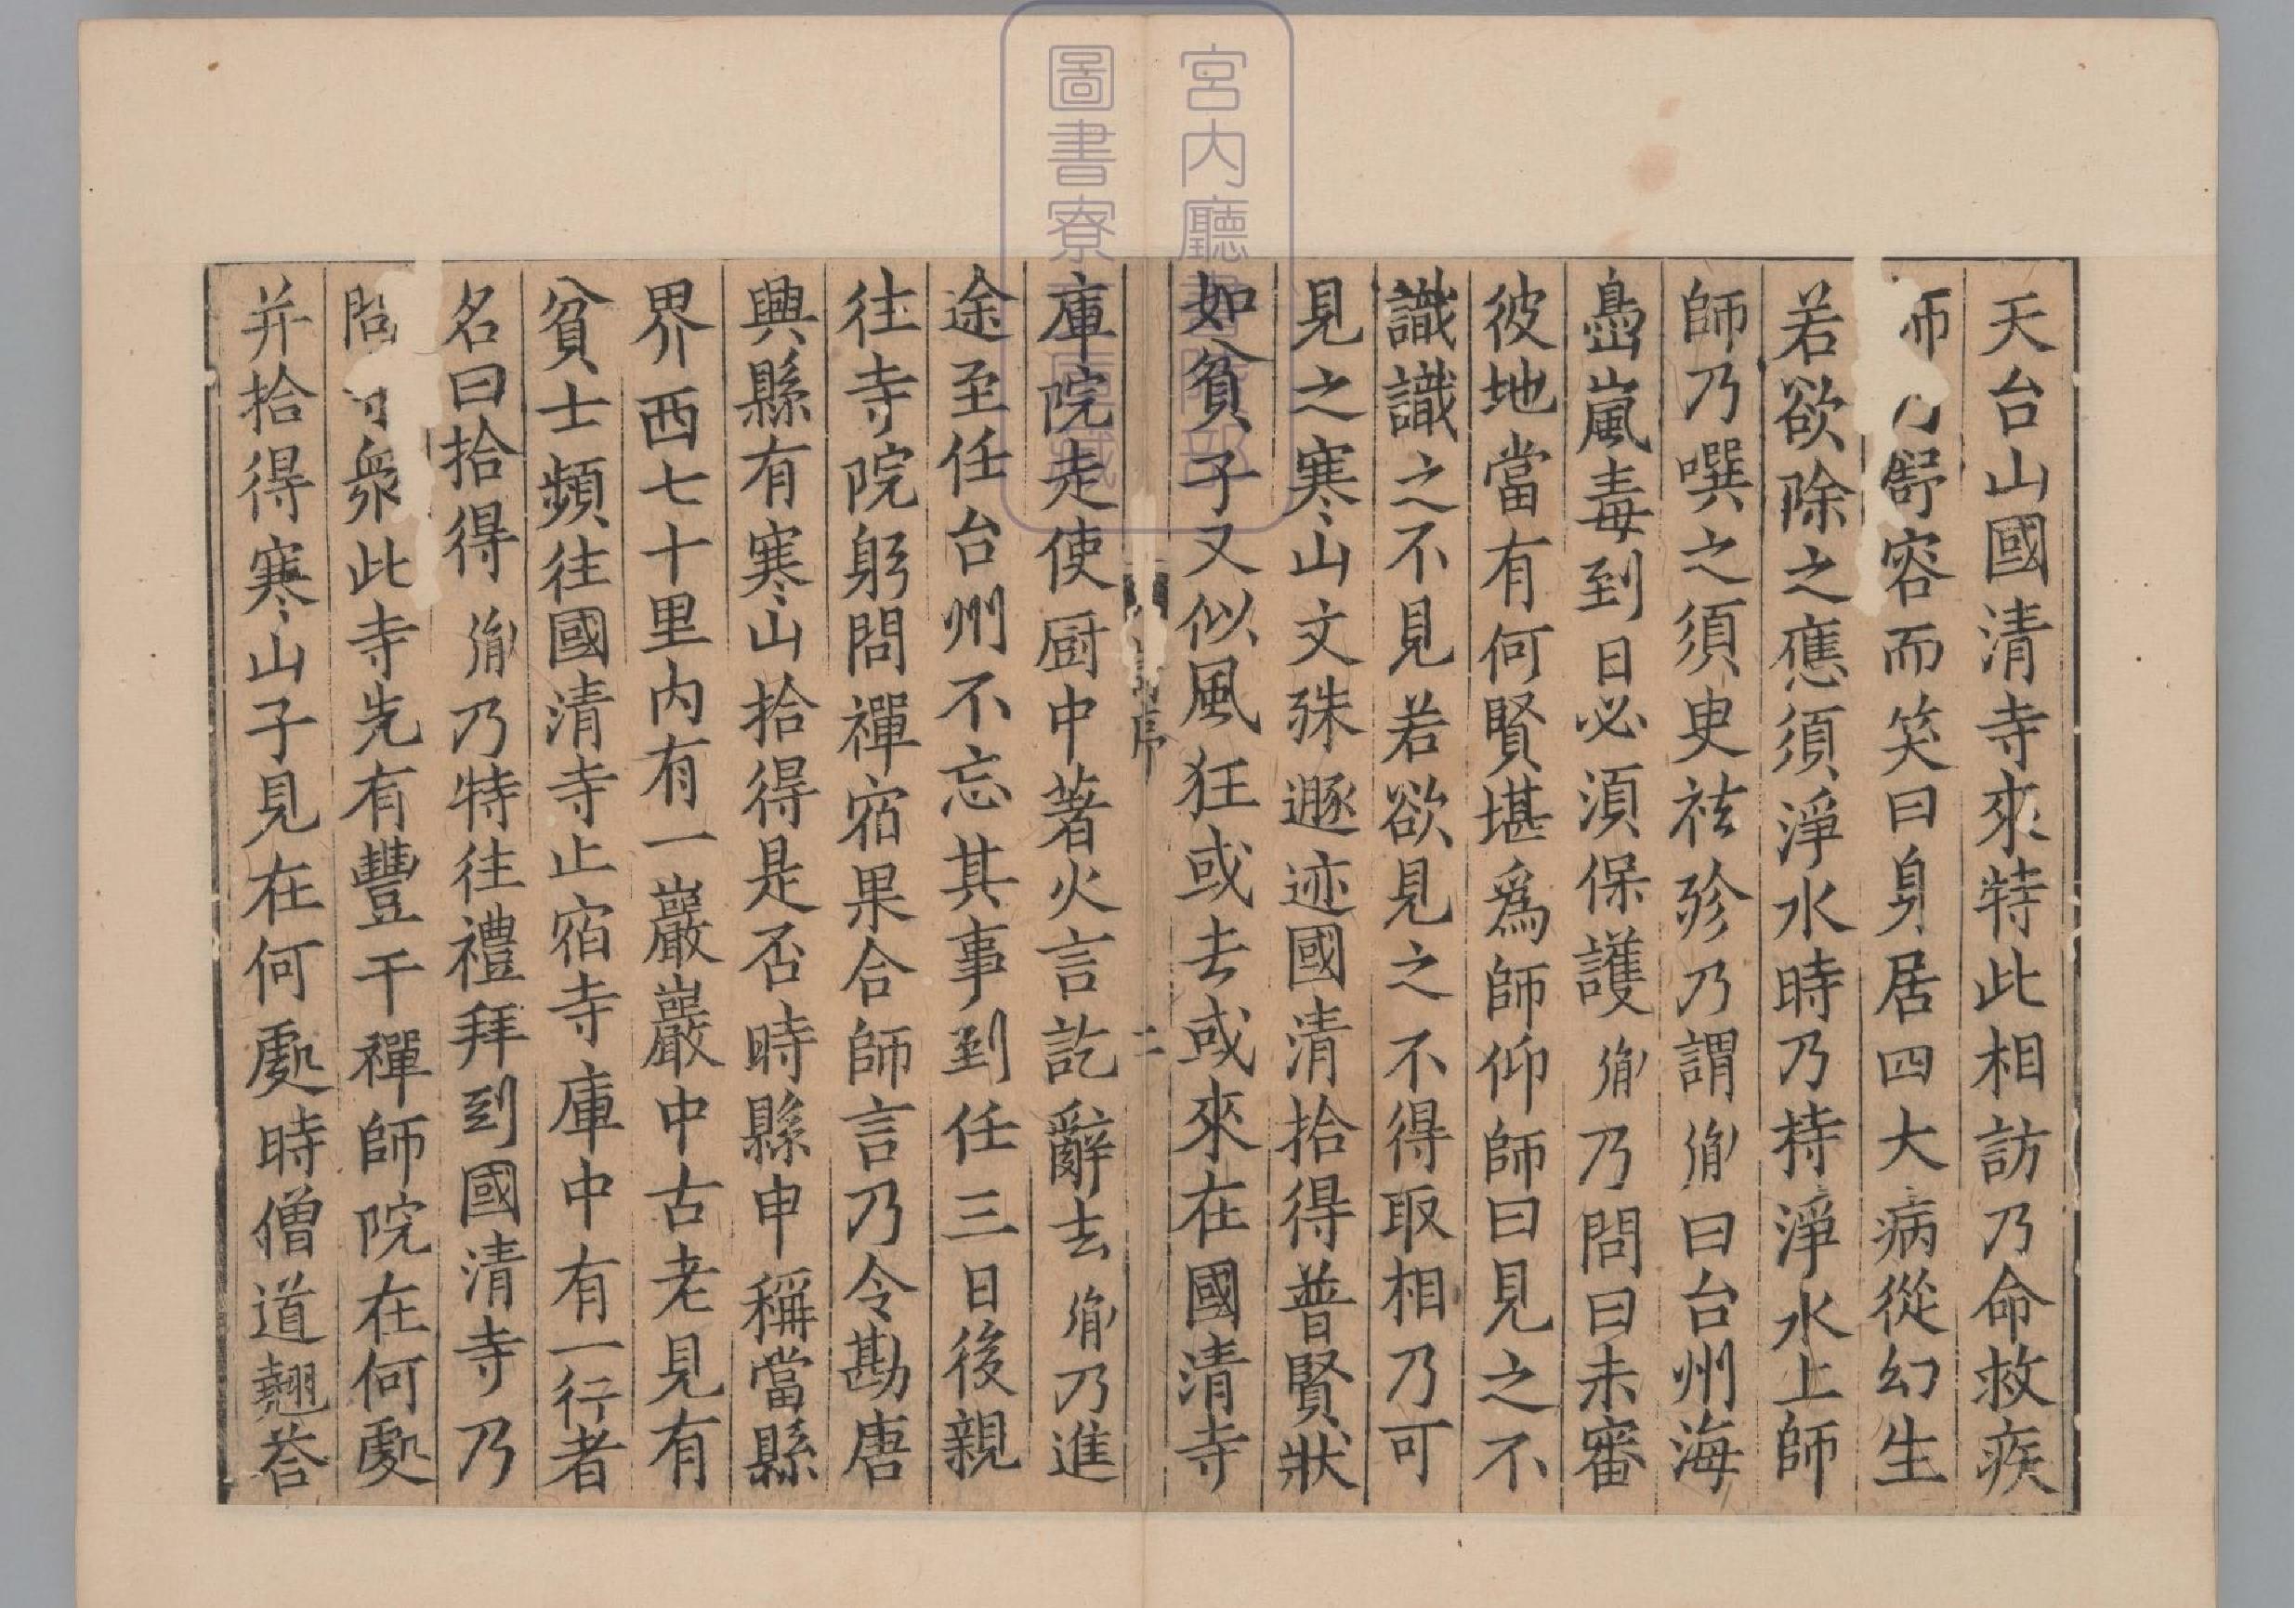 天台山國清寺來特此相訪乃命救疾
師乃舒容而笑曰身居四大病從幻生
若欲除之應須淨水時乃持淨水上師
師乃噀之須臾祛殄乃謂胤曰台州海
島嵐毒到日必須保護胤乃問曰未審
彼地當有何賢堪爲師仰師曰見之不
識識之不見若欲見之不得取相乃可
見之寒山文殊遯迹國清拾得普賢狀
如貧子又似風狂或去或來在國清寺
序
二
庫院走使厨中著火言訖辭去胤乃進
途至任台州不忘其事到任三日後親
往寺院躬問禪宿果合師言乃令勘唐
興縣有寒山拾得是否時縣申稱當縣
界西七十里内有一巖巖中古老見有
貧士頻往國清寺止宿寺庫中有一行者
名曰拾得胤乃特往禮拜到國清寺乃
問寺衆此寺先有豐干禪師院在何處
并拾得寒山子見在何處時僧道翹荅
宮内廳書陵部
圖書寮文庫藏